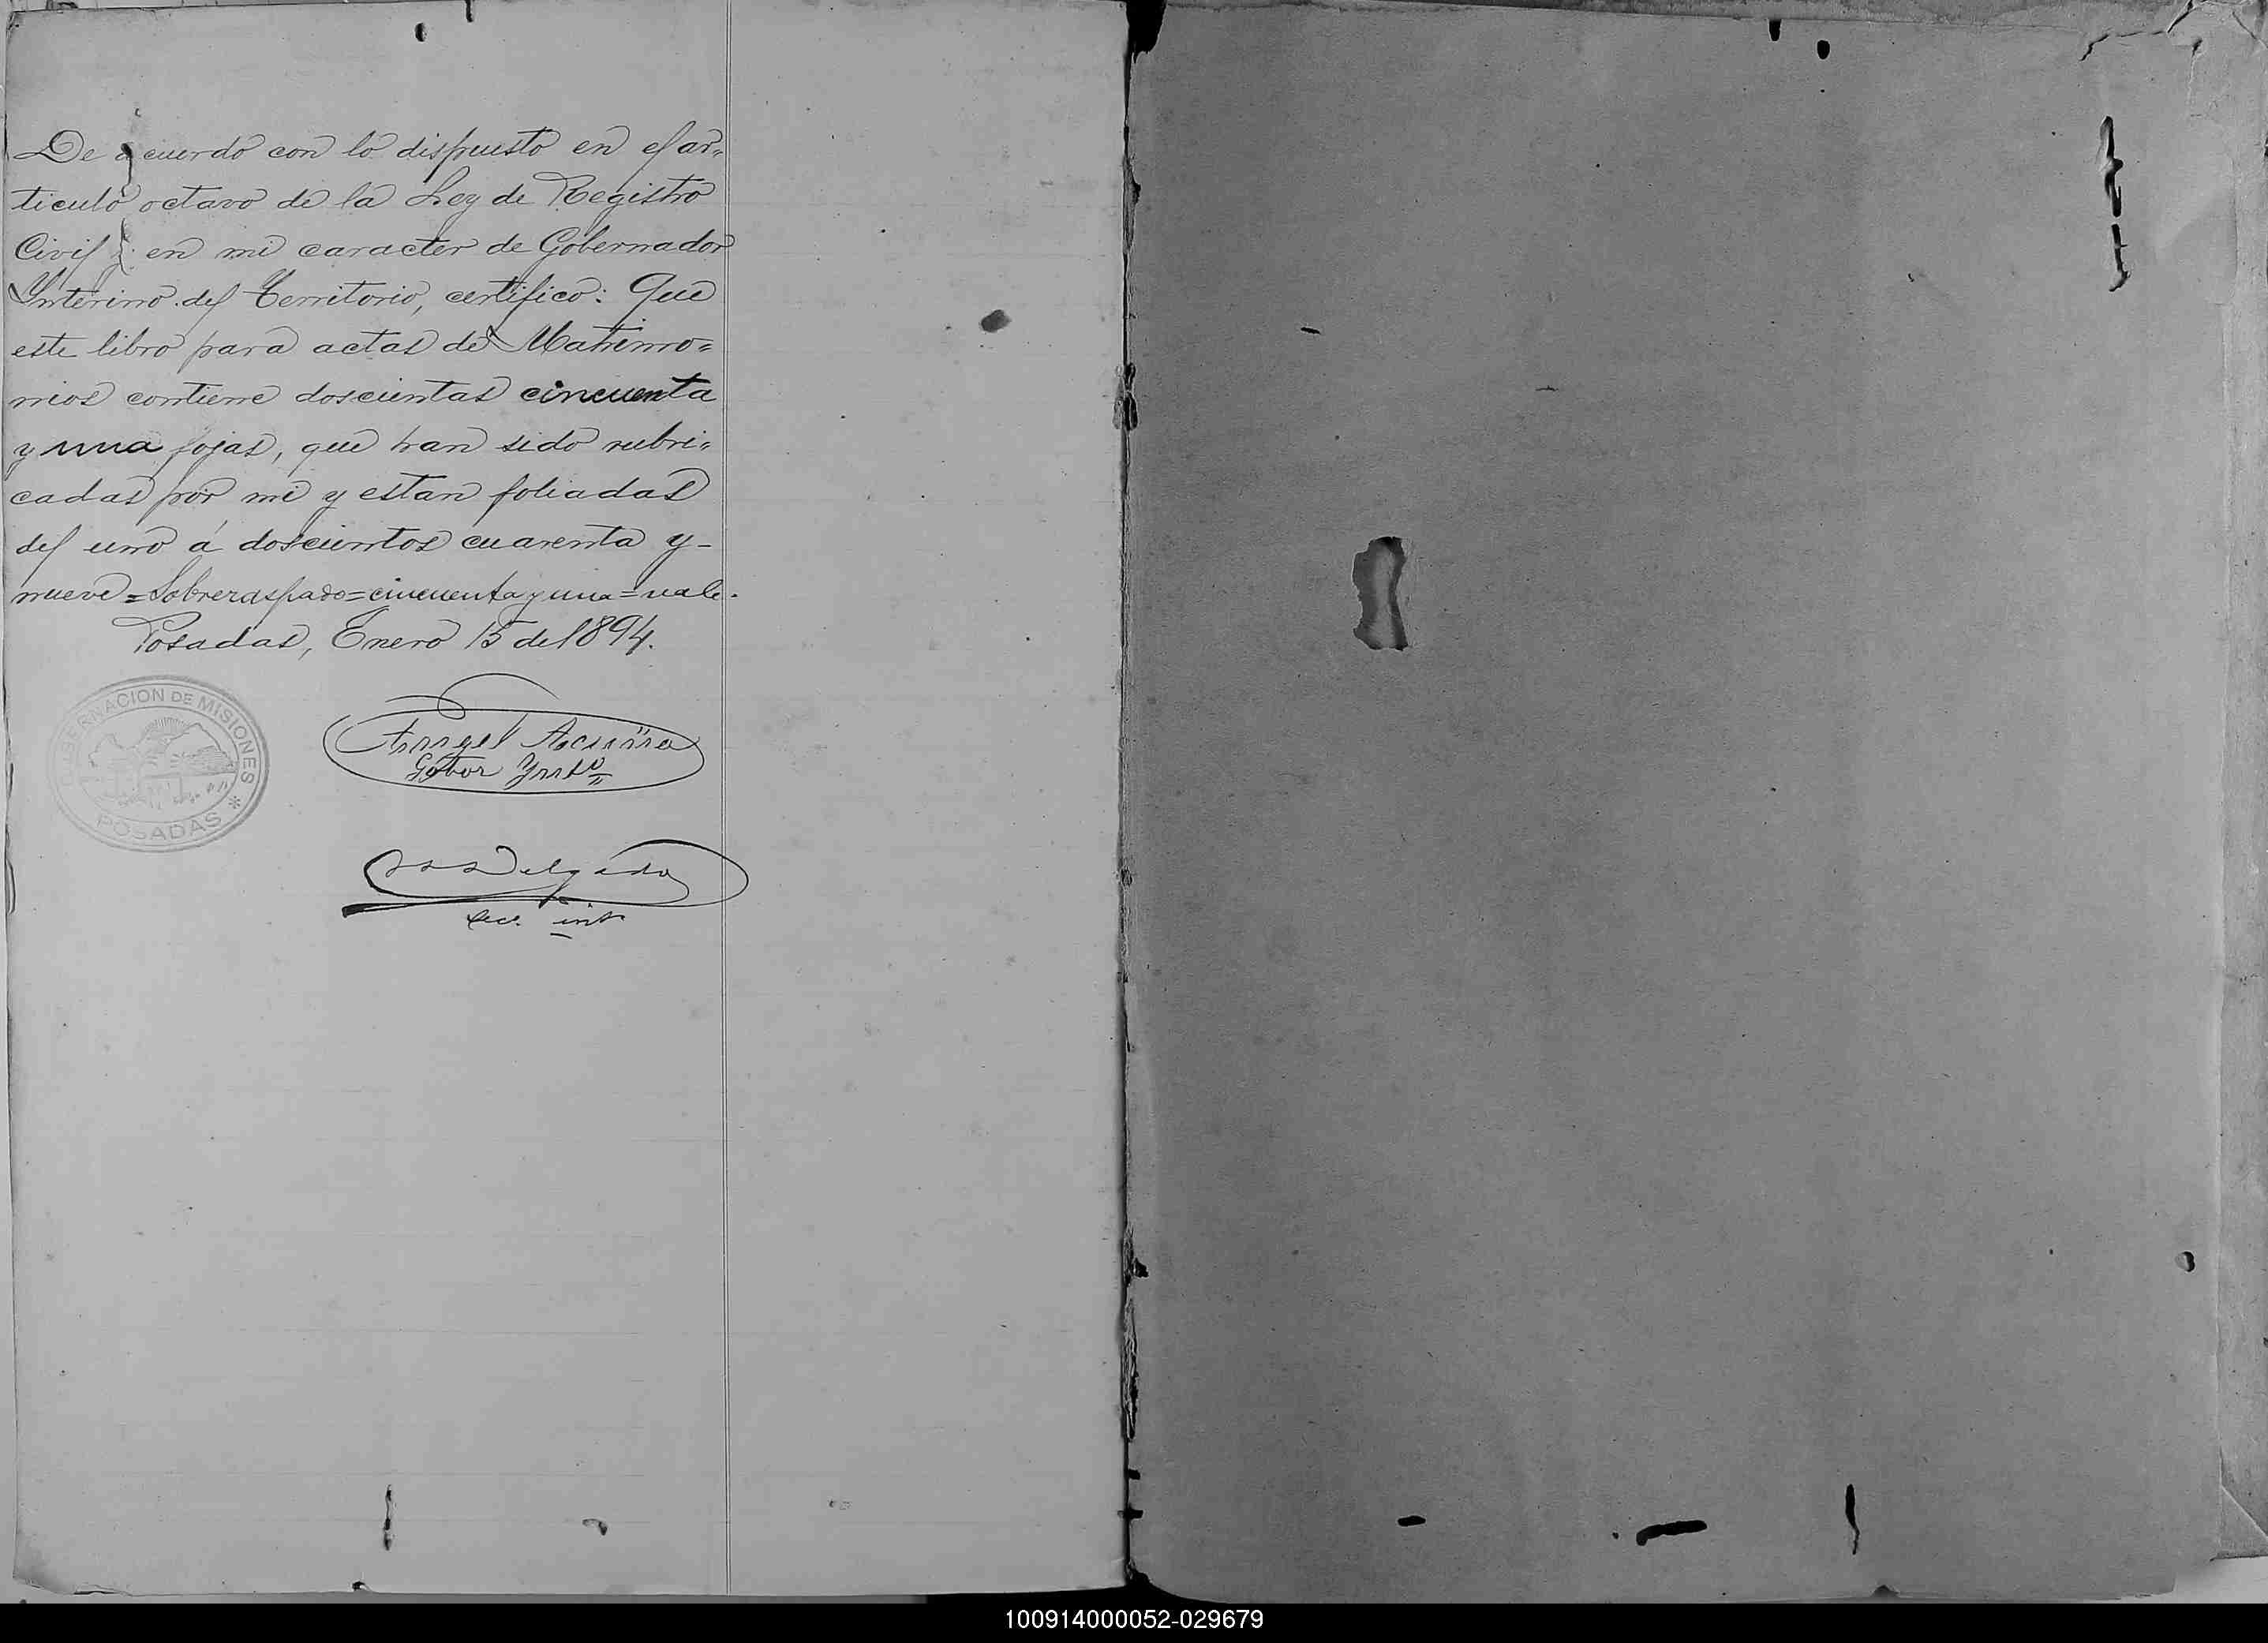 De acuerdo con lo dispuesto en el ar=
ticulo octavo de la Ley de Registro
Civil; en mi caracter de Gobernador
Ynterino del Territorio, certifico: Que
este libro para actas de Matrimo=
nios contiene doscientas cincuenta
y una fojas, que han sido rubri=
cadas por mi y estan foliadas
del uno á doscientos cuarenta y-
nueve=Sobreraspado=cincuenta y una=vale.
Posadas, Enero 15 de 1894.
GOBERNACION DE MISIONES
* POSADAS
Angel Acuña
Gobor Ynto
Delgado
Sec. int
100914000052-029679